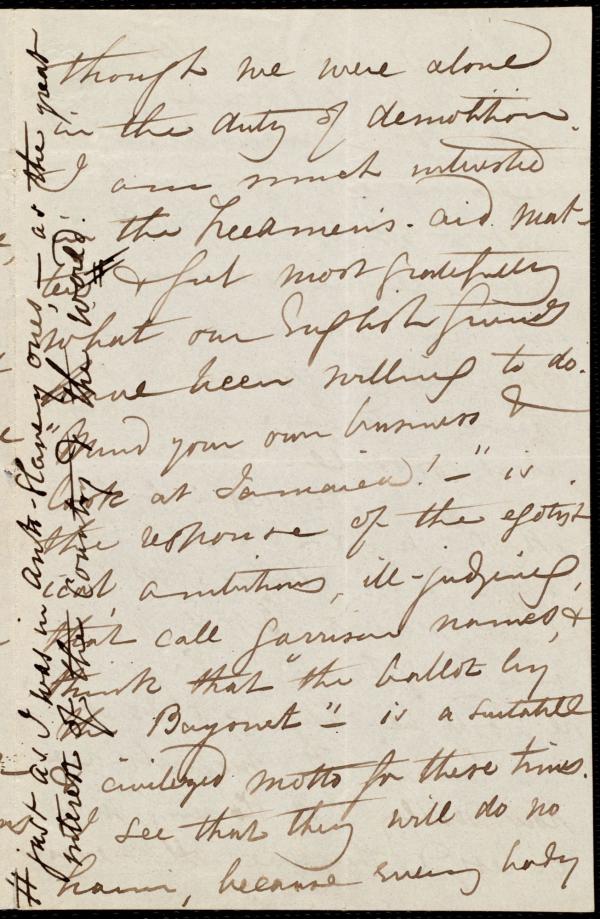 though we were alone
in the duty of demolition.
I am much interested
the Freedmen's-aid mat-
ter, & feel most gratefully
what our English friends
have been willing to do.
"Mind your own business &
look at Jamaica!—" is
the response of the egotist
ical, ambitious, ill-judging,
that call Garrison names, &
think that "the ballot by
the Bayonet"— is a suitable
civilized motto for these times.
I see that they will do no
harm, because every body
# just as I was in Anti-Slavery ones,— as the great
interest of the country & the world. #